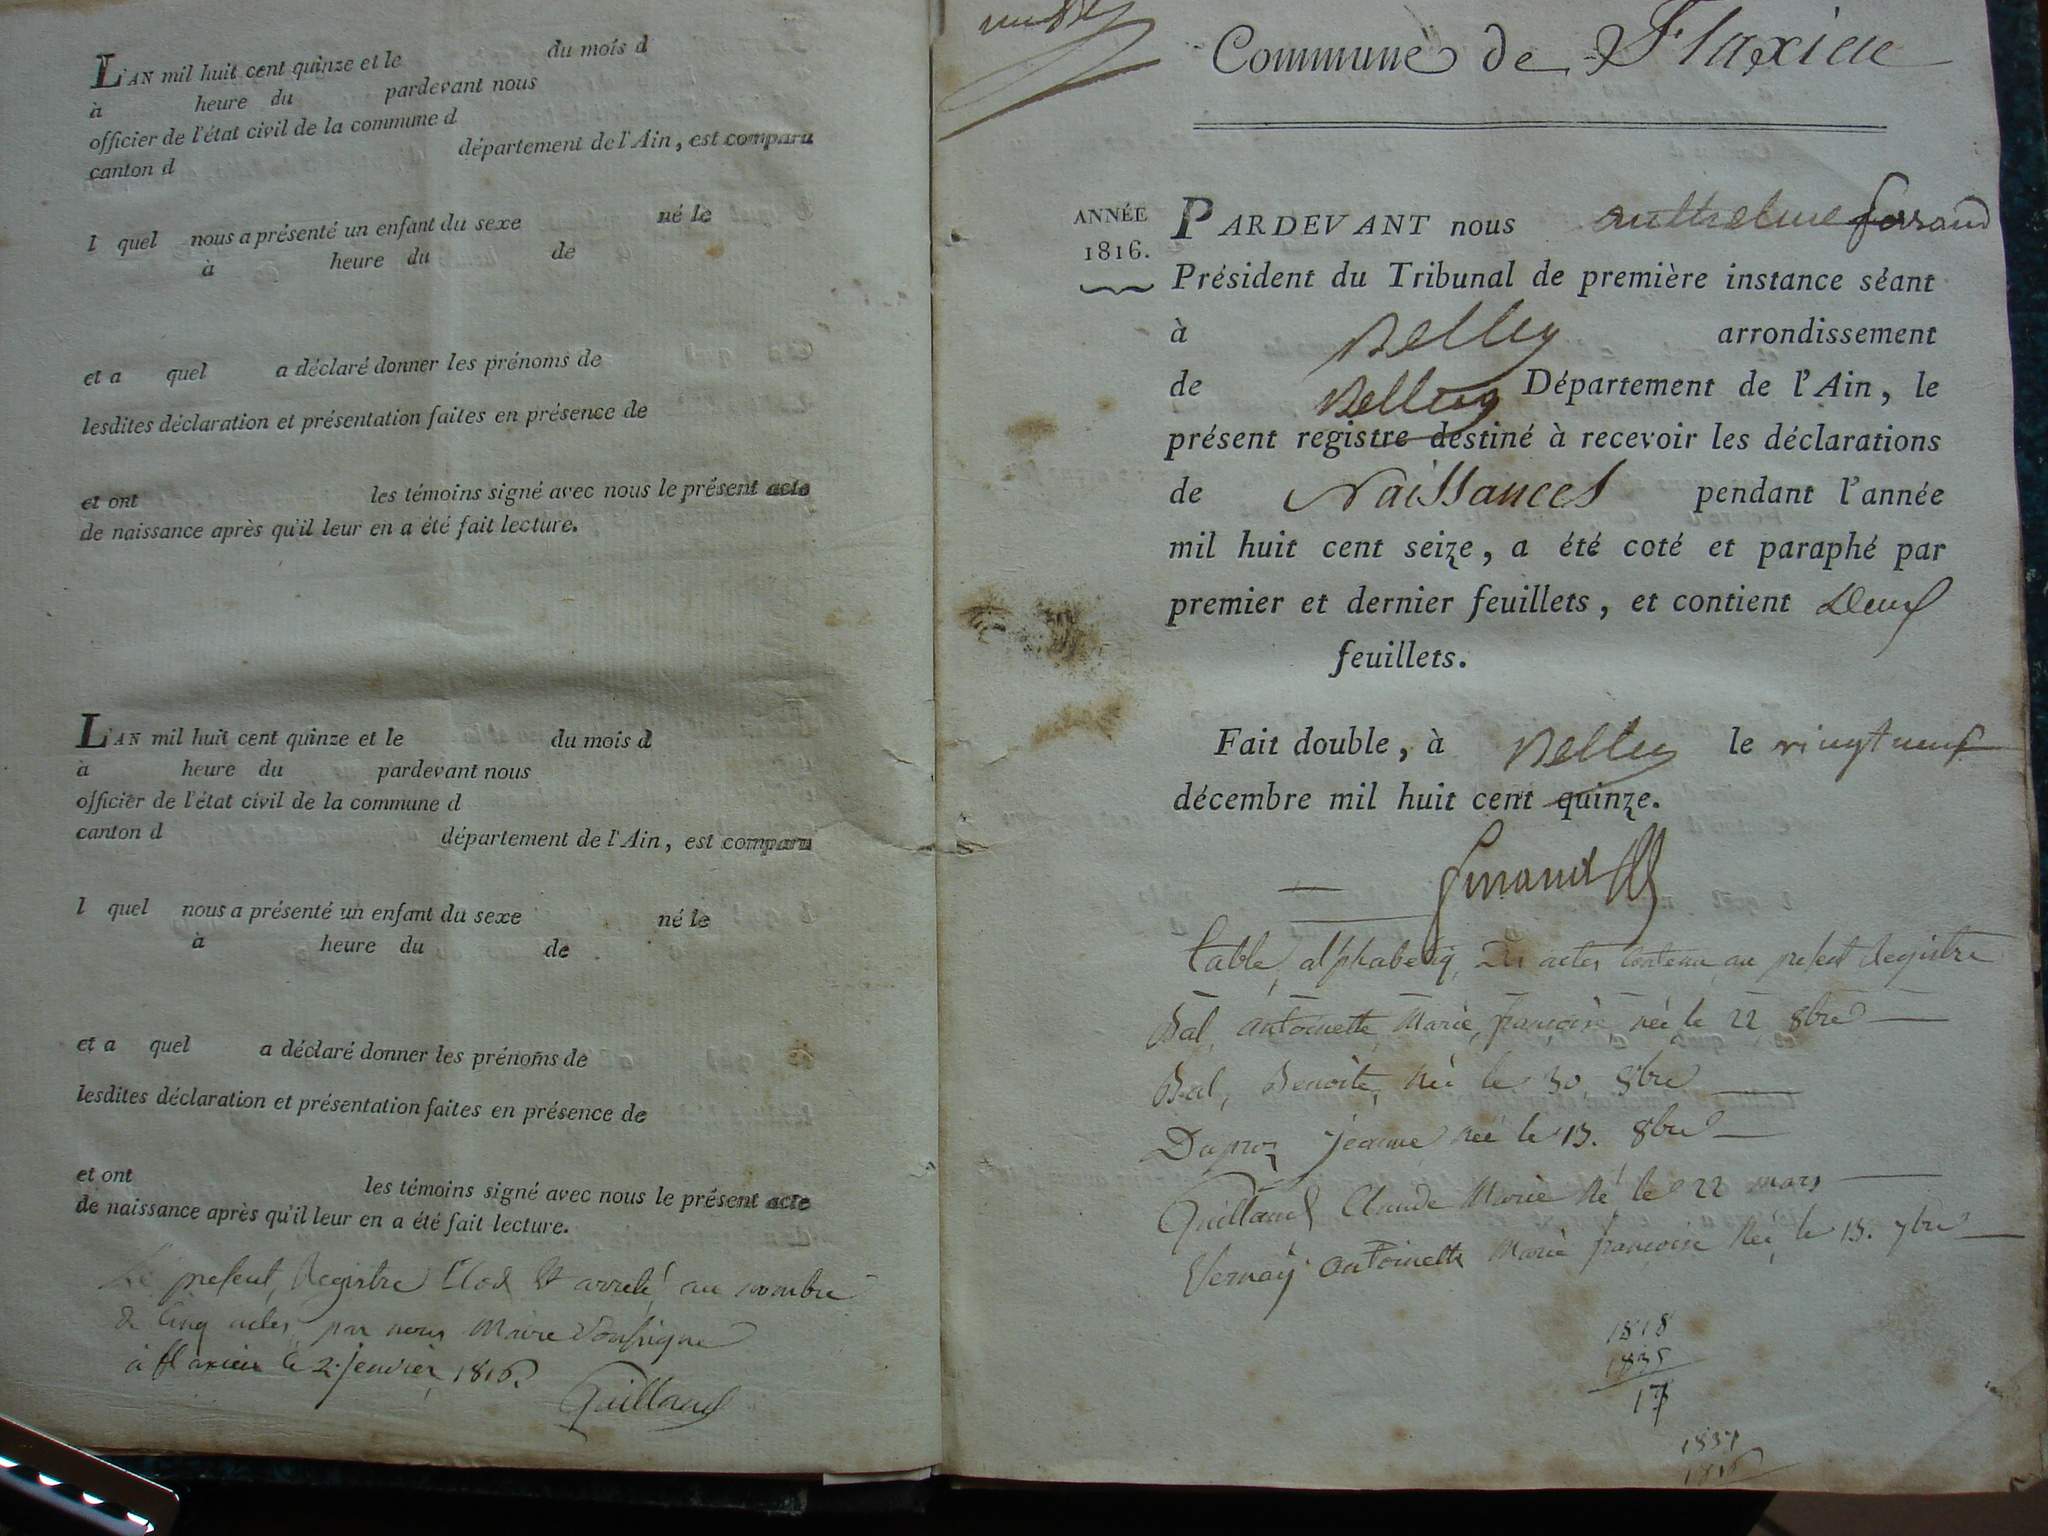 L'AN mil huit cent quinze et le du mois d
à heure du pardevant nous
officier de l'état civil de la commune d
canton d département de l'Ain, est comparu
l quel nous a présenté un enfant du sexe né le
à heure du de
et a quel a déclaré donner les prénoms de
lesdites déclaration et présentation faites en présence de
et ont les témoins signé avec nous le présent acte
de naissance après qu'il leur en a été fait lecture.
L'AN mil huit cent quinze et le du mois d
à heure du pardevant nous
officier de l'état civil de la commune d
canton d département de l'Ain, est comparu
l quel nous a présenté un enfant du sexe né le
à heure du de
et a quel a déclaré donner les prénoms de
lesdites déclaration et présentation faites en présence de
et ont les témoins signé avec nous le présent acte
de naissance après qu'il leur en a été fait lecture.
Le present Registre Clos et arreté au nombre
de Cinq actes par nous Maire Soussigne
à flaxieu le 2 janvier 1816.
Guilland
Commune de Flaxieu
ANNÉE
1816.
PARDEVANT nous anthelme ferrand
Président du Tribunal de première instance séant
à Belley arrondissement
de Belley Département de l'Ain, le
présent registre destiné à recevoir les déclarations
de Naissances pendant l'année
mil huit cent seize, a été coté et paraphé par
premier et dernier feuillets, et contient Deux
feuillets.
Fait double, à Belley le vingt neuf
décembre mil huit cent quinze.
table alphabetiq Des actes Contenu au present Registre
Bal, antoinette Marie, françoise née le 22 8bre
Bal, Benoite, née le 30 8bre
Duproz jeanne née le 13. 8bre
Guilland Claude Marie né le 22 mars
Vernay antoinette Marie françoise née le 15. 7bre
1818
1835
17
1837
1816